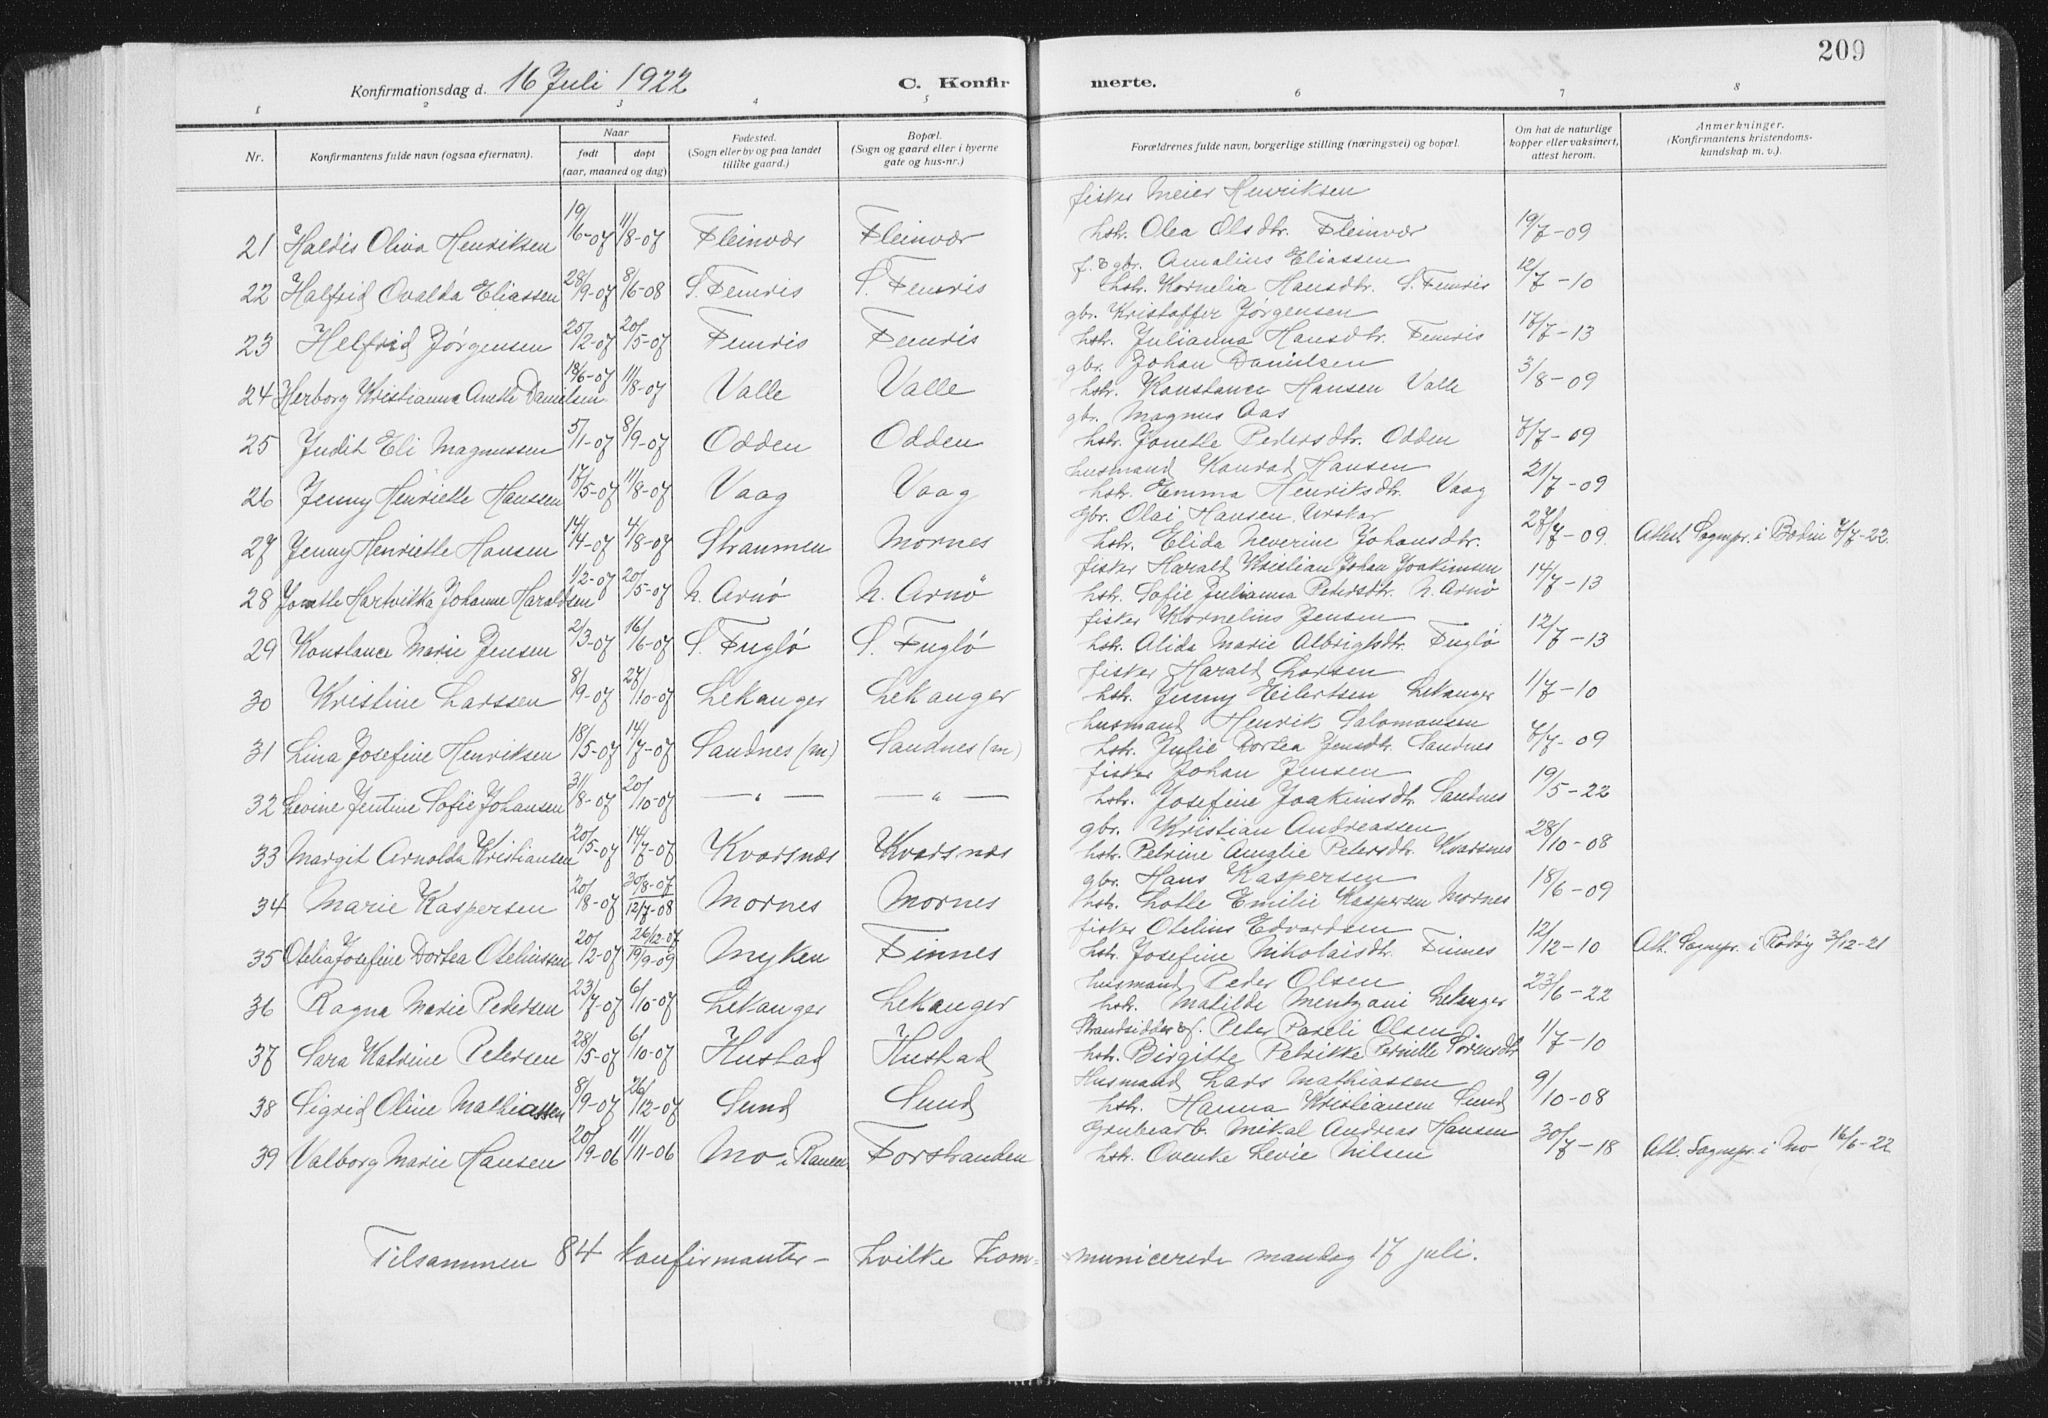 209
Konfirmationsdag d. 16 Juli 1922 C. Konfirmerte.
1 2 3 4 5 6 7 8
Nr. Konfirmantens fulde navn (ogsaa efternavn). Naar født døpt (aar, maaned og dag) Fødested. (Sogn eller by og paa landet tillike gaard.) Bopæl. (Sogn og gaard eller i byerne gate og hus-nr.) Forældrenes fulde navn, borgerlige stilling (næringsvei) og bopæl. Om hat de naturlige kopper eller vaksinert, attest herom. Anmerkninger. (Konfirmantens kristendoms-kundskap m. v.).
fisker Meier Henriksen
21 Haldis Oliva Henriksen 19/6-07 11/8-07 Fleinvær Fleinvær hstr. Olea Olsdtr. Fleinvær 19/7-09
f. & gbr. Amalius Eliassen
22 Halfrid Ovalda Eliassen 28/9-07 8/6-08 S. Femris S. Femris hstr. Kornelia Hansdtr. S. Femris 12/7-10
gbr. Kristoffer Jørgensen
23 Helfrid Jørgensen 25/2-07 20/5-07 Femris Femris hstr. Julianna Hansdtr. Femris 17/7-13
gbr. Johan Danielsen
24 Herborg Kristianna Anette Danielsen 18/6-07 11/8-07 Valle Valle hstr. Konstance Hansen Valle 3/8-09
gbr. Magnus Aas
25 Judit Eli Magnussen 5/1-07 8/9-07 Odden Odden hstr. Jonette Pedersdtr. Odden 7/7-09
husmand Konrad Hansen
26 Jenny Henriette Hanssen 17/5-07 11/8-07 Vaag Vaag hstr. Emma Henriksdtr. Vaag 21/7-09
gbr. Olai Hansen,
27 Jenny Henriette Hansen 14/4-07 4/8-07 Straumen Mornes hstr. Elida Neverine Johansdtr. 27/7-09 Attest Sognepr. i Bodin 7/7-22
fisker Harald Kristian Johan Joakimsen
28 Jonette Hartvikka Johanne Haraldsen 1/2-07 20/5-07 N. Arnø N. Arnø hstr. Sofie Julianna Petersdtr. N. Arnø 14/7-13
fisker Kornelius Jensen
29 Konstance Marie Jensen 2/3-07 16/6-07 S. Fuglø S. Fuglø hstr. Alida Marie Albrigtsdtr. Fuglø 12/7-13
fisker Harald Larsen
30 Kristine Larssen 8/9-07 27/10-07 Lekanger Lekanger hstr. Jenny Eilertsen Lekanger 1/7-10
husmand Henrik Salomonsen
31 Lina Josefine Henriksen 18/5-07 14/7-07 Sandnes (m) Sandnes (m) hstr. Julie Dortea Jensdtr. Sandnes 7/7-09
fisker Johan Jensen
32 Levine Jentine Sofie Johansen 31/8-07 20/10-07 — " — — " — hstr. Josefine Joakimsdtr. Sandnes 19/5-22
gbr. Kristian Andreassen
33 Margit Arnolda Kristiansen 20/5-07 14/7-07 Kvarsnæs Kvarsnæs hstr. Petrine Amalie Petersdtr. Kvarsnes 28/10-08
gbr. Hans Kaspersen
34 Marie Kaspersen 20/8-07 30/8-07 12/7-08 Mornes Mornes hstr. Lotte Emilie Kaspersen Mornes 18/6-09
fisker Otelius Edvardsen
35 Otelia Josefine Dortea Oteliussen 20/12-07 26/12-07 19/9-09 Myken Finnes hstr. Josefine Nikolaisdtr. Finnes 12/12-10 Att. Sognepr. i Rødøy 3/12-21
husmand Peder Olsen
36 Ragna Marie Pedersen 23/7-07 6/10-07 Lekanger Lekanger hstr. Matilde Mentzoni Lekanger 23/6-22
Strandsidder & f. Peter Pareli Olsen
37 Sara Katrine Petersen 28/5-07 6/10-07 Hustad Hustad hstr. Birgitte Petrikke Pernille Sørensdtr 1/7-10
Husmand Lars Mathiassen
38 Sigrid Oline Mathiassen 8/9-07 26/12-07 Sund Sund hstr. Hanna Kristiansen Sund 9/10-08
Grubearb. Mikal Andreas Hansen
39 Valborg Marie Hansen 20/9-06 11/11-06 Mo i Ranen Forstranden hstr. Ovenke Levie Nilsen 30/7-18 Att. Sognepr. i Mo 16/6-22
Tilsammen 84 konfirmanter – hvilke kommunicerede mandag 17 juli.